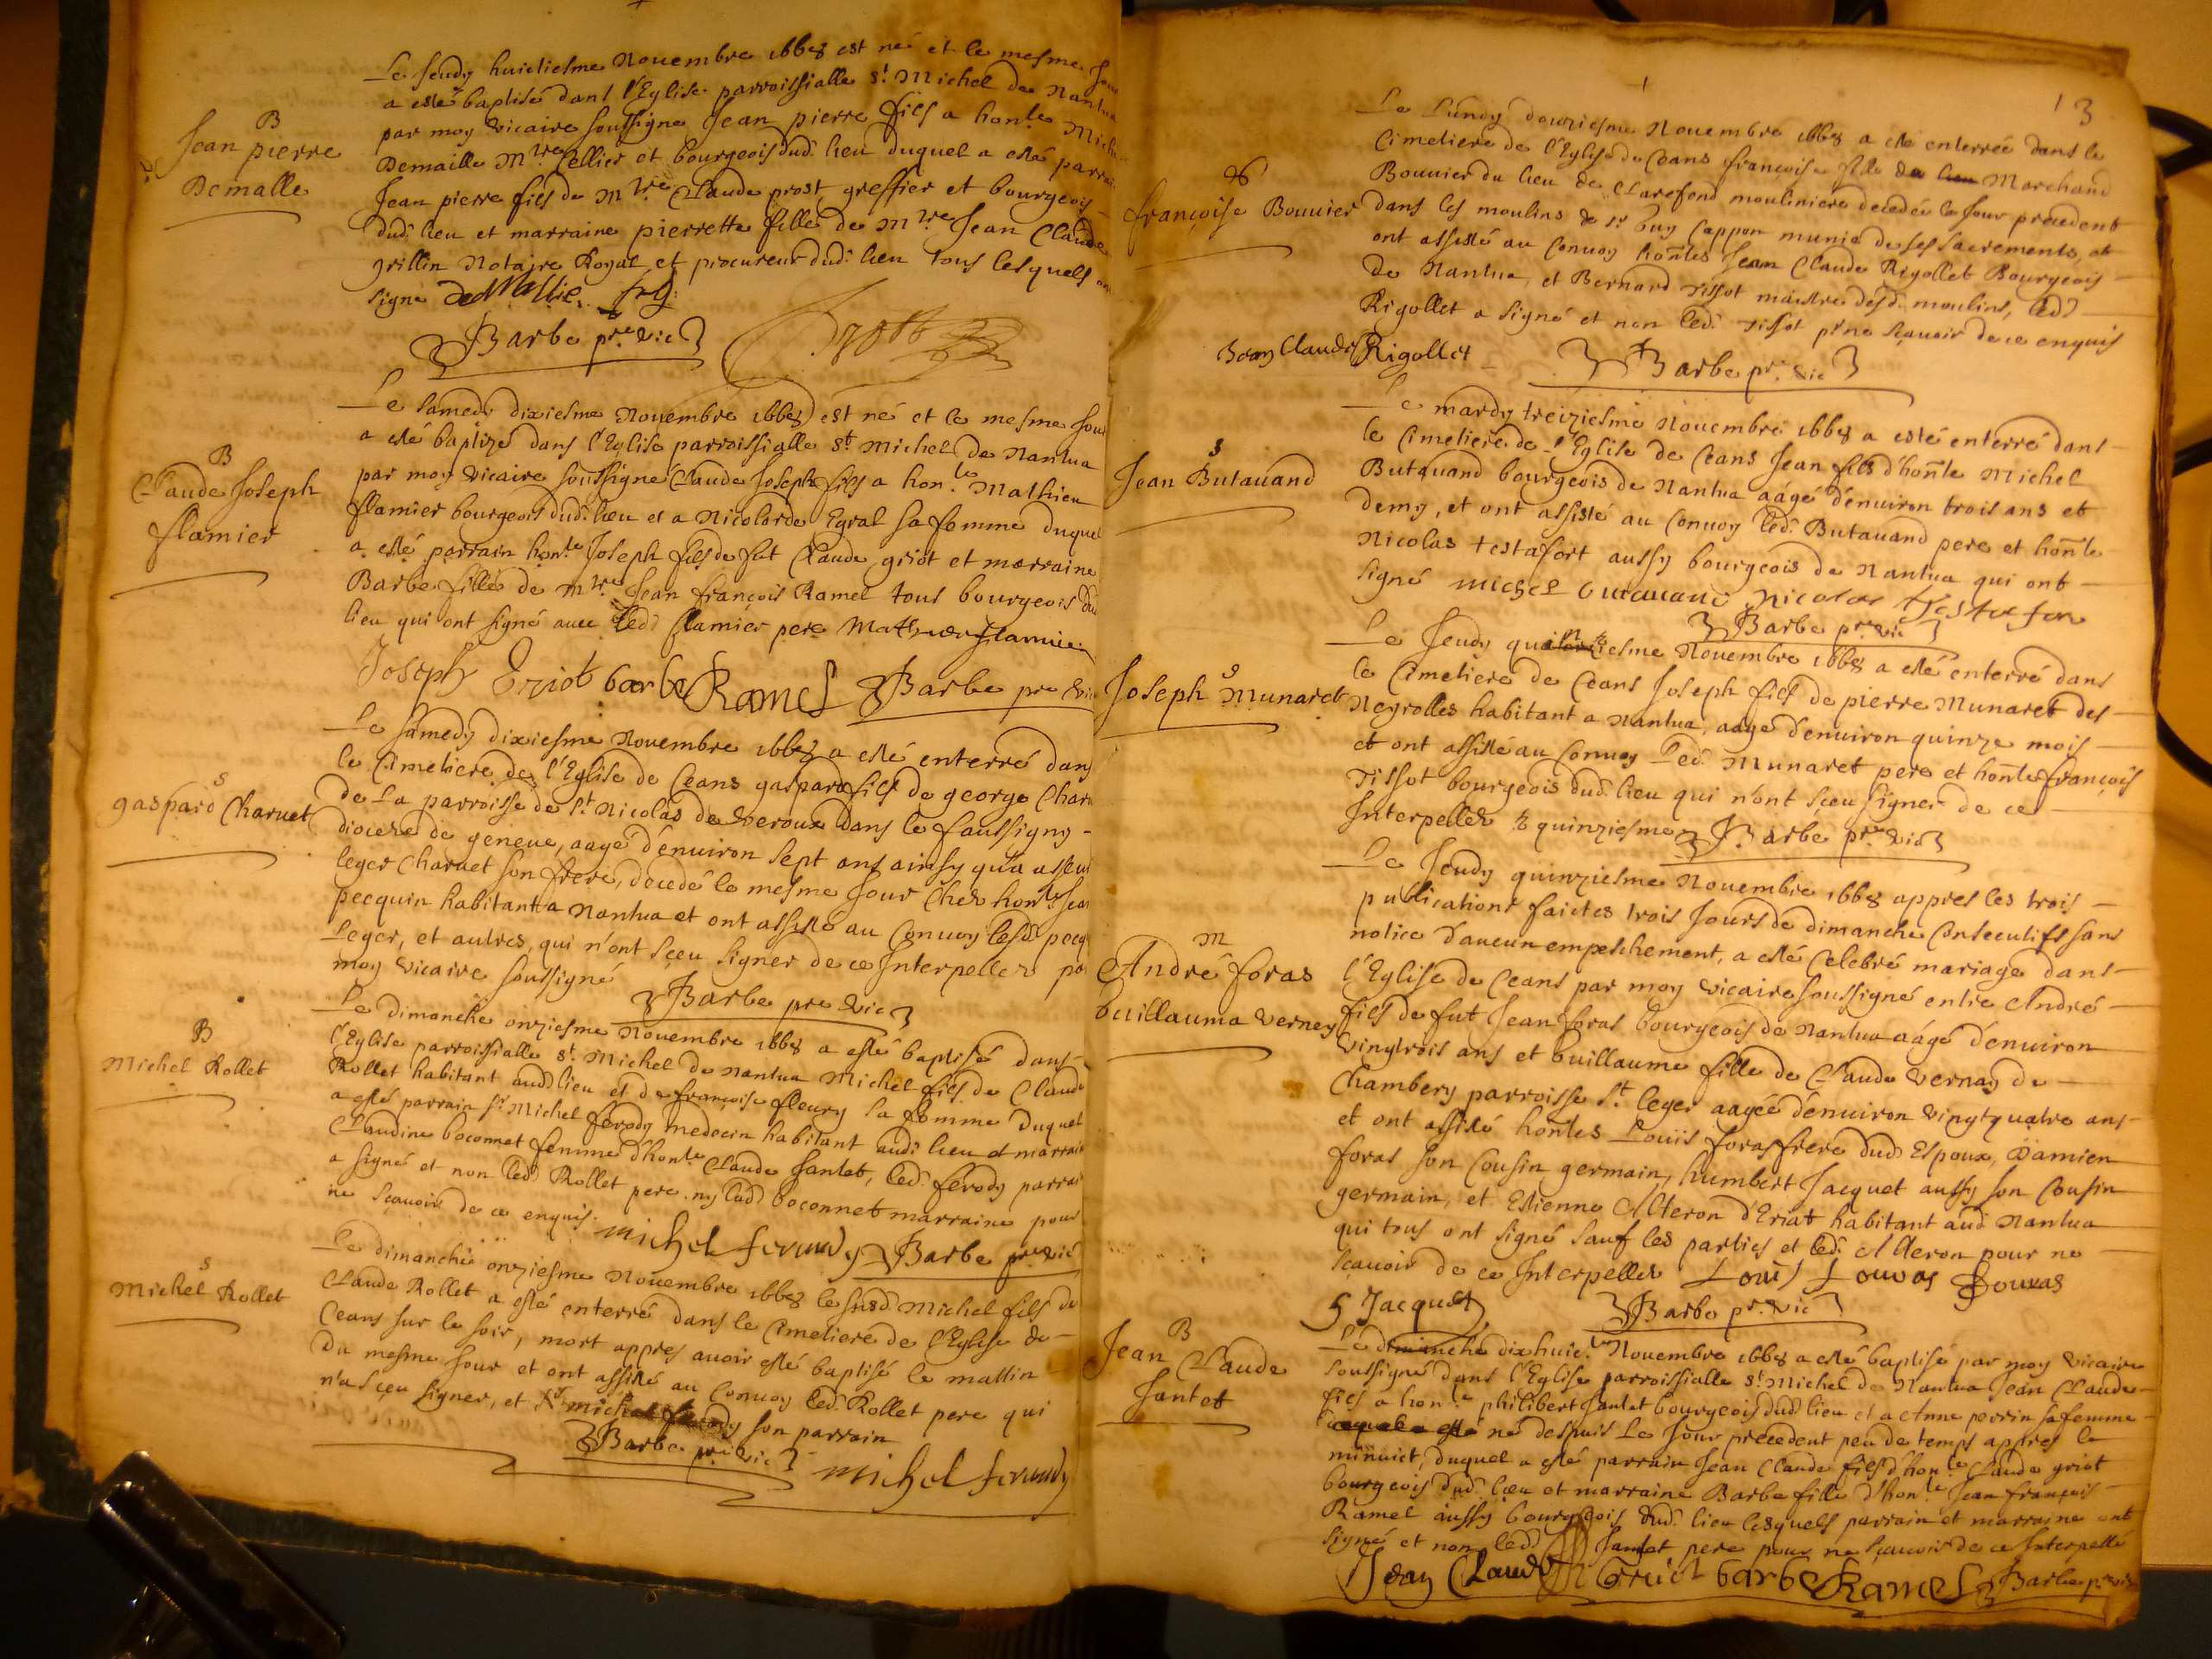 Le Jeudy huictiesme Nouembre 1668 est né et le mesme Jour
a esté baptisé dans l'Eglise parroissialle St Michel de Nantua
B
Jean pierre
Demalle
par moy vicaire soussigne Jean pierre fils a honle Mich
Demaille Mtre Cellier et bourgeois dud. lieu duquel a esté parrain
Jean pierre fils de Mtre Claude prost greffier et bourgeois
dud. lieu et marraine pierrette fille de Mtre Jean Claude
grillin Notaire Royal et procureur dud. lieu tous lesquels on
signé
Barbe pre vic
Le Samedy dixiesme Nouembre 1668 est né et le mesme Jour
a esté baptizé dans l'Eglise parroissialle St Michel de Nantua
B
Claude Joseph
flamier
par moy vicaire soussigné Claude Joseph fils a honle Mathieu
flamier bourgeois dud. lieu et a Nicolarde Egral sa femme duquel
a esté parrain honle Joseph fils de fut Claude griot et marraine
Barbe fille de Mtre Jean françois Ramel tous bourgeois dud
lieu qui ont signé auec led flamier pere Mathieu flamier
Joseph Griot barbe Ramel Barbe pre vic
Le Samedy dixiesme Nouembre 1668 a esté enterré dans
le Cimetiere de l'Eglise de Ceans gaspard fils de george Char
S
gaspard Charuet
de La parroisse de St Nicolas de veroux dans le faussigny
diocese de geneue, aagé d'enuiron sept ans ainsy qu'a asseu
leger Charuet son frere, decedé le mesme Jour Chez honle Jean
pecquin habitant a Nantua et ont assisté au Conuoy lesd pecq
Leger, et autres, qui n'ont sçeu signer de ce Interpellez pa
moy vicaire soussigné
Barbe pre vic
Le dimanche onziesme Nouembre 1668 a esté baptisé dans
B
Michel Rollet
l'Eglise parroissialle St Michel de Nantua Michel fils de Claude
Rollet habitant aud lieu et de françoise fleury sa femme duquel
a esté parrain Sr Michel ferody medecin habitant aud. lieu et marraine
Claudine boconnet femme d'honle Claude Jantet, led. ferody parrain
a signé et non led Rollet pere ny lad boconnet marraine pour
ne sçauoir de ce enquis. michel ferroudy Barbe pre vic
Le dimanche onziesme Nouembre 1668 le susd Michel fils de
S
Michel Rollet
Claude Rollet a esté enterré dans le Cimetiere de l'Eglise de
Ceans sur le soir, mort appres auoir esté baptisé le mattin
du mesme Jour et ont assisté au Conuoy led. Rollet pere qui
n'a sçeu signer, et Sr michel ferody son parrain
Barbe pre vic michel ferroudy
13
Le Lundy douziesme Nouembre 1668 a esté enterrée dans le
Cimetiere de l'Eglise de Ceans françoise fille de lieu Marchand
françoise Bouuier
Bouuier du lieu de Clarefond mouliniere decedée le Jour precedent
dans les moulins de Sr Guy Cappon munie de ses sacrements, et
ont assisté au Conuoy honles Jean Claude Rigollet Bourgeois
de Nantua, et Bernard Tissot maistre desd. moulins, led
Rigollet a signé et non led. Tissot pr ne sçauoir de ce enquis
Jean Claude Rigollet Barbe pre vic
Le mardy treiziesme Nouembre 1668 a esté enterré dans
S
Jean Butauand
le Cimetiere de l'Eglise de Ceans Jean fils d'honle Michel
Butauand bourgeois de Nantua aagé d'enuiron trois ans et
demy, et ont assisté au Conuoy led. Butauand pere et honle
Nicolas testafort aussy bourgeois de Nantua qui ont
signé michel butauand nicolas testefort
Barbe pre vic
Le Jeudy quatorziesme Nouembre 1668 a esté enterré dans
S
Joseph Munaret
le Cimetiere de Ceans Joseph fils de pierre Munaret des
Neyrolles habitant a Nantua, aagé d'enuiron quinze mois
et ont assisté au Conuoy led. Munaret pere et honle françois
Tissot bourgeois dud. lieu qui n'ont sceu signer de ce
Interpellez quinziesme Barbe pre vic
Le Jeudy quinziesme Nouembre 1668 appres les trois
publications faictes trois Jours de dimanche Consecutifs sans
notice d'aucun empeschement, a esté celebré mariage dans
M
André foras
Guillauma Verney
l'Eglise de Ceans par moy vicaire soussigné entre André
fils de fut Jean foras bourgeois de Nantua aagé d'enuiron
vingtrois ans et Guillaume fille de Claude Vernay de
Chambery parroisse St leger aagée d'enuiron vingt quatre ans
et ont assisté honles Louis foras frere dud Espoux, Damien
foras son Cousin germain, humbert Jacquet aussy son Cousin
germain, et Estienne Alteron d'Eriat habitant aud Nantua
qui tous ont signé sauf les parties et led. Alteron pour ne
sçauoir de ce Interpellez Louis fouras Douras
Jacquet Barbe pre vic
B
Jean Claude
Jantet
Le dimanche dixhuict Nouembre 1668 a esté baptisé par moy vicaire
soussigné dans l'Eglise parroissialle St Michel de Nantua Jean Claude
fils a honle philibert Jantet bourgeois dud lieu et a Anne perrin sa femme
né despuis Le Jour precedent peu de temps appres le
minuict, duquel a esté parrain Jean Claude fils d'honle Claude griot
bourgeois dud. lieu et marraine Barbe fille d'honle Jean françois
Ramel aussy bourgeois dud. lieu lesquels parrain et marraine ont
signé et non led Jantet pere pour ne sçauoir de ce Interpellé
Jean Claude Griot barbe Ramel Barbe pre vic